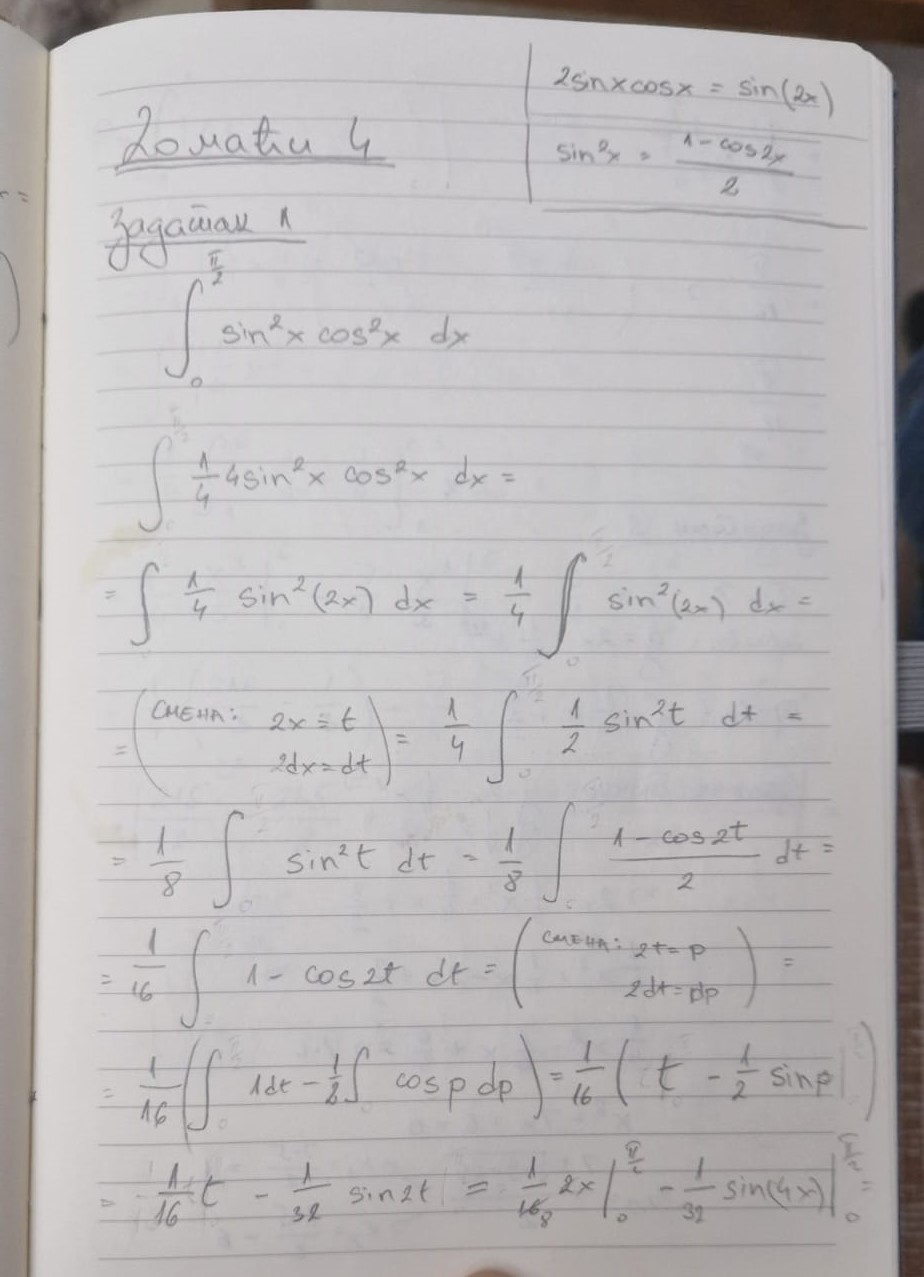 2sinxcosx = sin(2x)
sin²x = (1-cos2x)/2
Домаћи 4
Задатак 1
∫₀^(π/2) sin²x cos²x dx
∫ 1/4 4sin²x cos²x dx =
= ∫ 1/4 sin²(2x) dx = 1/4 ∫₀^(π/2) sin²(2x) dx =
= (СМЕНА: 2x = t
2dx = dt) = 1/4 ∫₀^(π/2) 1/2 sin²t dt =
= 1/8 ∫₀^(π/2) sin²t dt = 1/8 ∫ (1-cos2t)/2 dt =
= 1/16 ∫ 1 - cos2t dt = (СМЕНА: 2t = p
2dt = dp) =
= 1/16 (∫ 1dt - 1/2 ∫ cos p dp) = 1/16 ( t - 1/2 sin p )
= 1/16 t - 1/32 sin2t = 1/16₈ 2x |₀^(π/2) - 1/32 sin(4x) |₀^(π/2) =